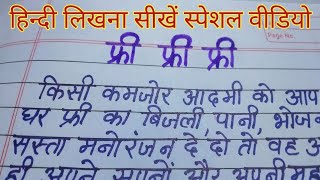 हिन्दी लिखना सीखें स्पेशल वीडियो
Page No.
फ्री फ्री फ्री
किसी कमजोर आदमी को आप
घर फ्री का बिजली, पानी, भोजन
सस्ता मनोरंजन दे दो तो वह अ
ही अपने सपनों और अपनी मह